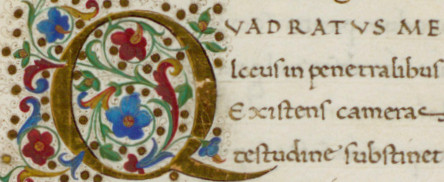 QVADRATVS ME
locus in penetralibus
Existens camerae
testudine substinet